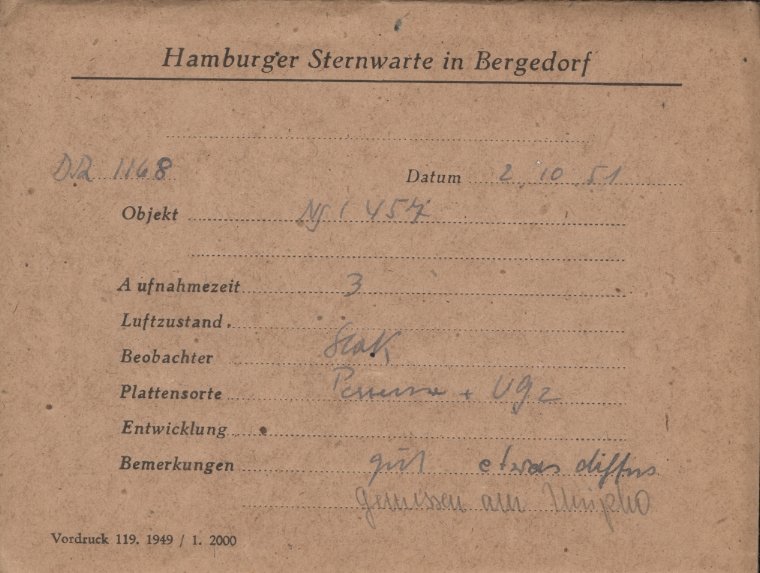 Hamburger Sternwarte in Bergedorf
DR 1168 Datum 2. 10. 51
Objekt 457
Aufnahmezeit 3
Luftzustand
Beobachter
Plattensorte + UG2
Entwicklung
Bemerkungen gut etwas diffus
gemessen am
Vordruck 119. 1949 / 1. 2000